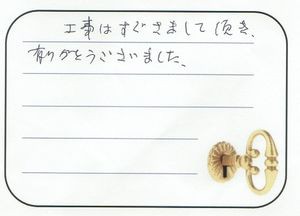 工事はすぐさまして頂き、
有りがとうございました、